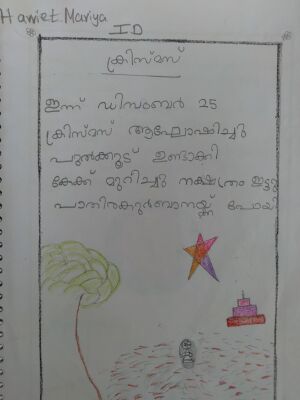 Harriet Mariya
ID
ക്രിസ്മസ്
ഇന്ന് ഡിസംബർ 25
ക്രിസ്മസ് ആഘോഷിച്ചു
പുൽക്കൂട് ഉണ്ടാക്കി
കേക്ക് മുറിച്ചു നക്ഷത്രം ഇട്ടു
പാതിരാകുർബാനയ്ക്ക് പോയി